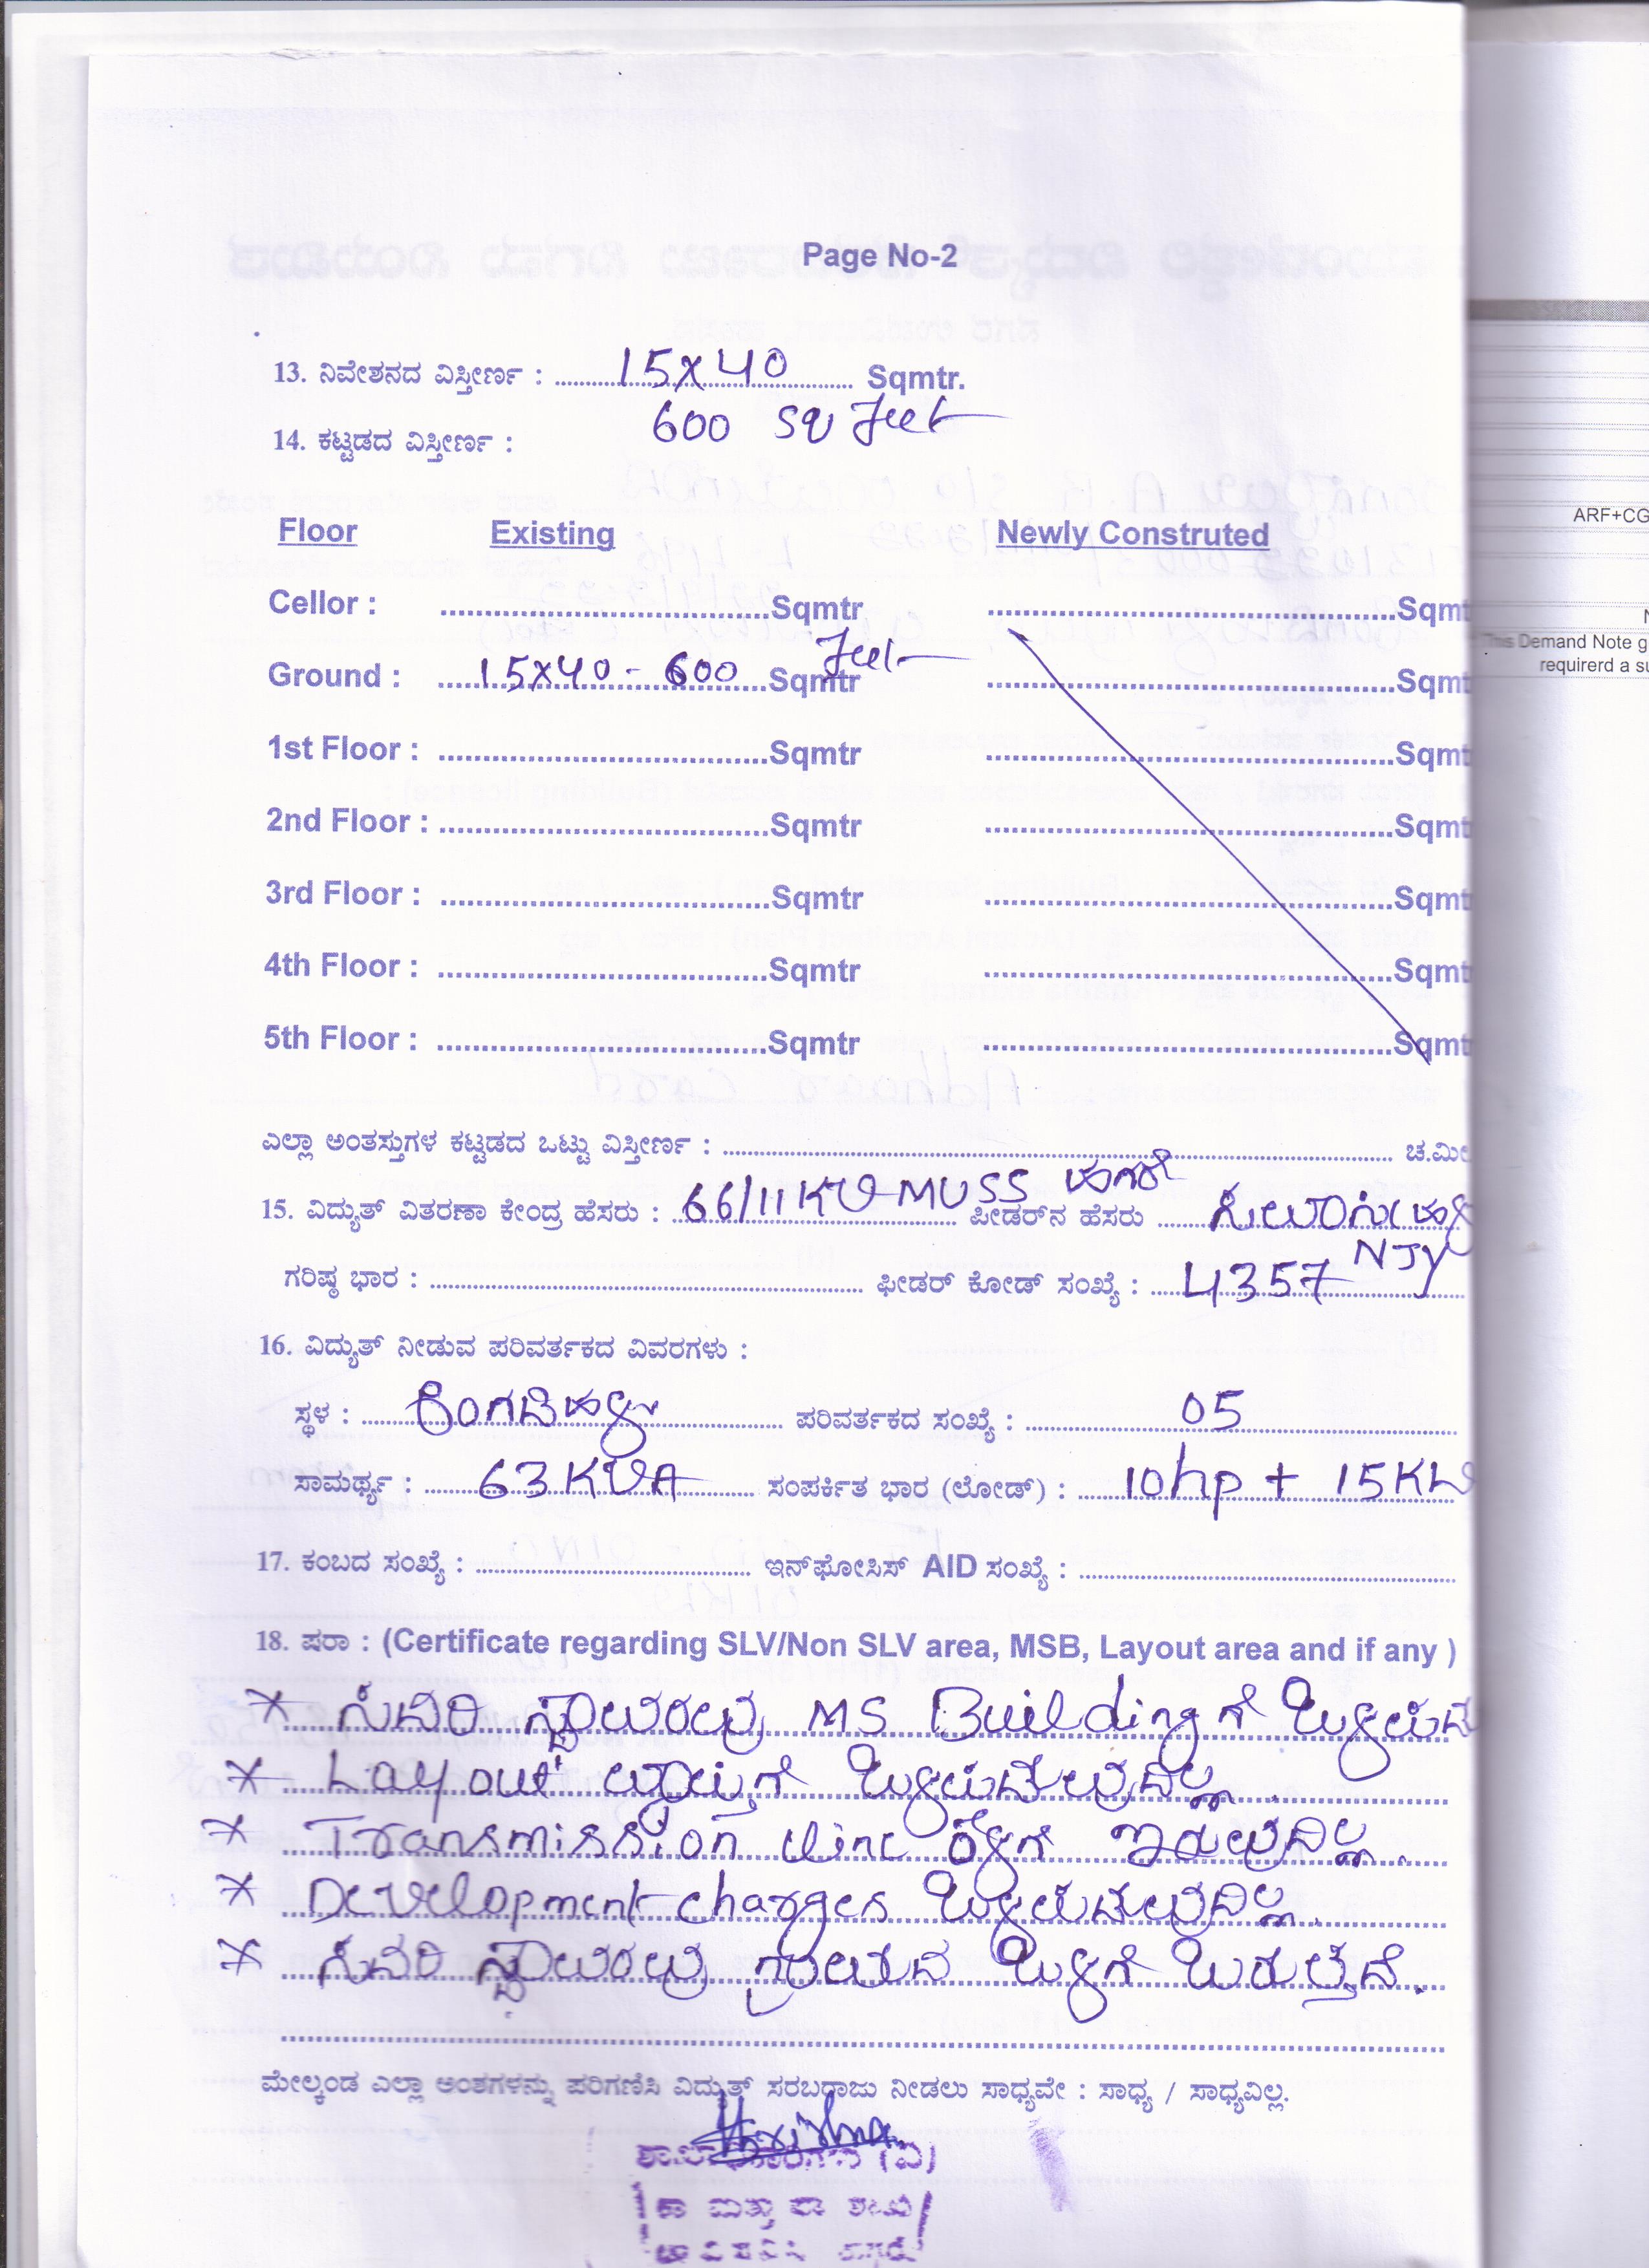 Page No-2
13. ನಿವೇಶನದ ವಿಸ್ತೀರ್ಣ : 15x40 Sqmtr.
600 sq feet
14. ಕಟ್ಟಡದ ವಿಸ್ತೀರ್ಣ :
Floor Existing Newly Construted
Cellor : Sqmtr Sqmt
Feet
Ground : 15x40 - 600 Sqmtr Sqmt
1st Floor : Sqmtr Sqmt
2nd Floor : Sqmtr Sqmt
3rd Floor : Sqmtr Sqmt
4th Floor : Sqmtr Sqmt
5th Floor : Sqmtr Sqmt
ಎಲ್ಲಾ ಅಂತಸ್ತುಗಳ ಕಟ್ಟಡದ ಒಟ್ಟು ವಿಸ್ತೀರ್ಣ : ಚ.ಮೀ
15. ವಿದ್ಯುತ್ ವಿತರಣಾ ಕೇಂದ್ರ ಹೆಸರು : 66/11KV MUSS ಹಗರೆ ಪೀಡರ್‌ನ ಹೆಸರು
NJY
ಗರಿಷ್ಠ ಭಾರ : ಫೀಡರ್ ಕೋಡ್ ಸಂಖ್ಯೆ : 4357
16. ವಿದ್ಯುತ್ ನೀಡುವ ಪರಿವರ್ತಕದ ವಿವರಗಳು :
ಸ್ಥಳ : ಪರಿವರ್ತಕದ ಸಂಖ್ಯೆ : 05
ಸಾಮರ್ಥ್ಯ : 63 KVA ಸಂಪರ್ಕಿತ ಭಾರ (ಲೋಡ್) : 10hp + 15KW
17. ಕಂಬದ ಸಂಖ್ಯೆ : ಇನ್‌ಫೋಸಿಸ್ AID ಸಂಖ್ಯೆ :
18. ಷರಾ : (Certificate regarding SLV/Non SLV area, MSB, Layout area and if any )
* ಸದರಿ ಸ್ಥಾವರವು MS Building ಗೆ
* Layout ವ್ಯಾಪ್ತಿಗೆ ಒಳಪಡುವುದಿಲ್ಲ.
* Transmission line ಕೆಳಗೆ ಇರುವುದಿಲ್ಲ.
* Development charges ಒಳಪಡುವುದಿಲ್ಲ.
* ಸದರಿ ಸ್ಥಾವರವು ಗ್ರಾಮದ ಒಳಗೆ ಬರುತ್ತದೆ.
ಮೇಲ್ಕಂಡ ಎಲ್ಲಾ ಅಂಶಗಳನ್ನು ಪರಿಗಣಿಸಿ ವಿದ್ಯುತ್ ಸರಬರಾಜು ನೀಡಲು ಸಾಧ್ಯವೇ : ಸಾಧ್ಯ / ಸಾಧ್ಯವಿಲ್ಲ.
ARF+CG
This Demand Note g
requirerd a su